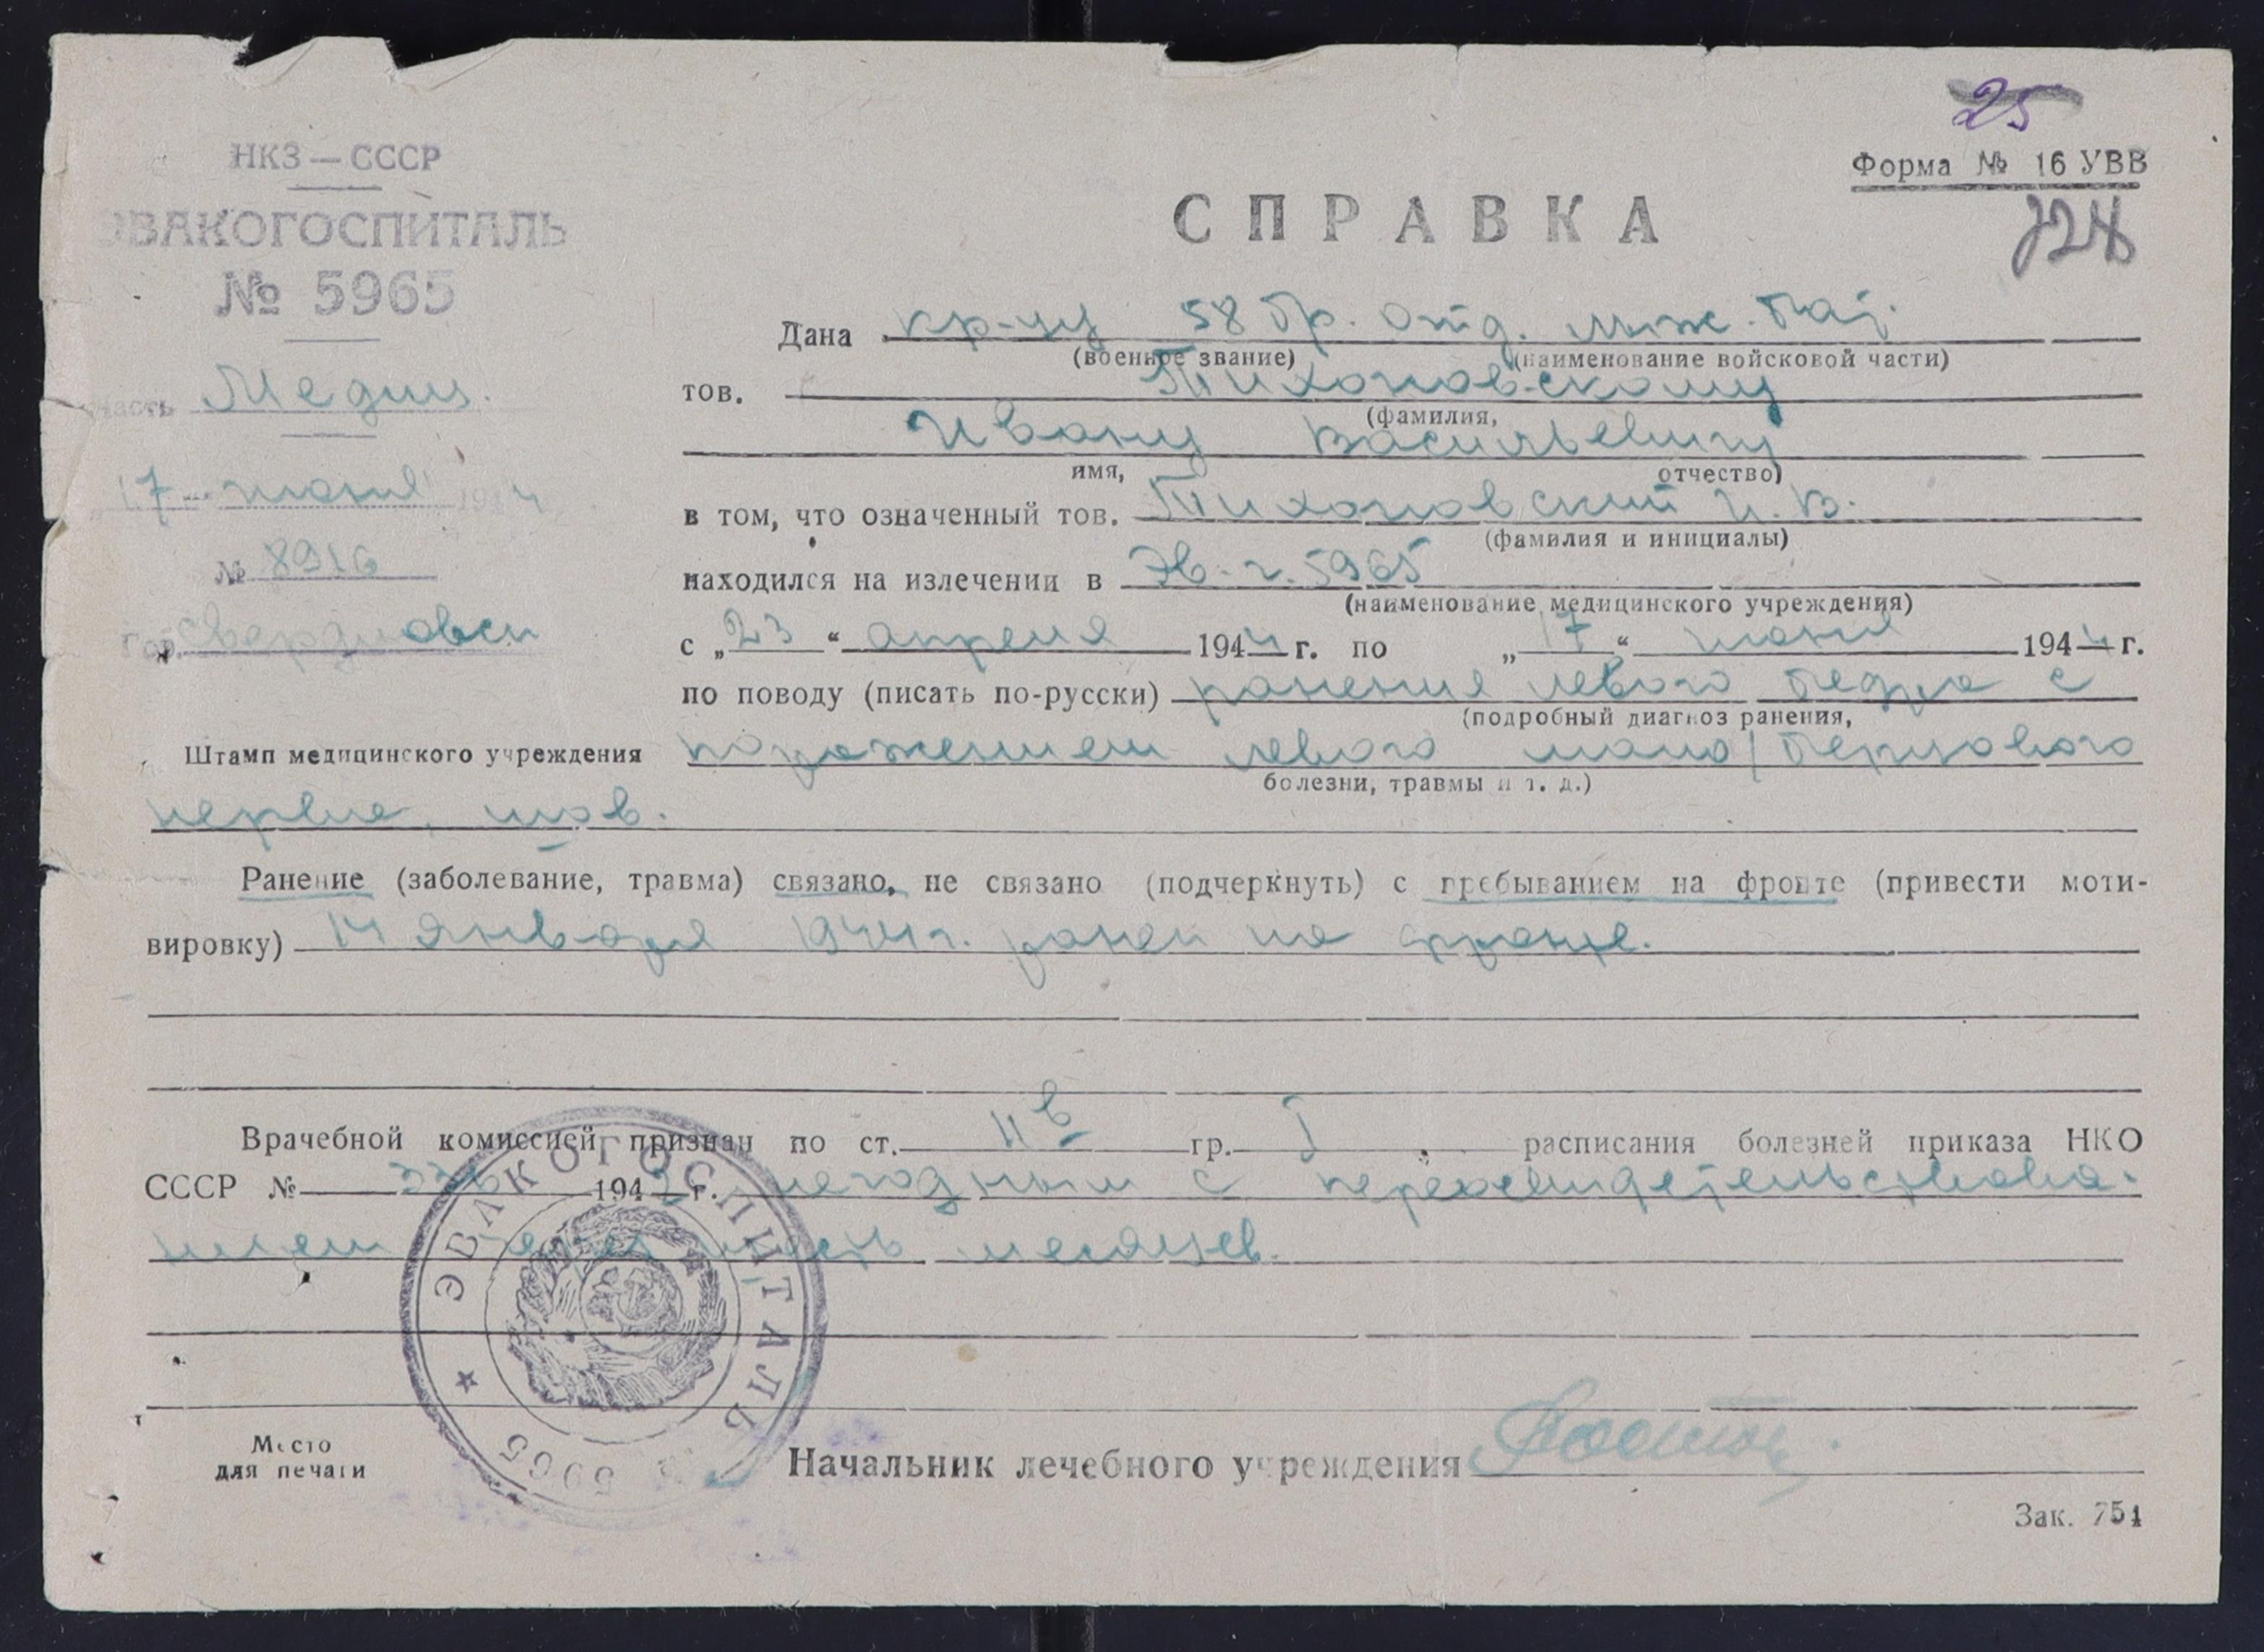 25
Форма № 16 УВВ
724
НКЗ — СССР
ЭВАКОГОСПИТАЛЬ
№ 5965
часть Медиц.
17 июня 1944
№ 8916
Гор. Свердловск
Штамп медицинского учреждения
СПРАВКА
Дана кр-цу 58 Гр. отд. лыж. бат.
(военное звание) (наименование войсковой части)
тов. Тихоновскому
(фамилия,
Ивану Васильевичу
имя, отчество)
в том, что означенный тов. Тихоновский И. В.
(фамилия и инициалы)
находился на излечении в Эв. г. 5965
(наименование медицинского учреждения)
с „23“ апреля 1944 г. по „17“ июня 1944 г.
по поводу (писать по-русски) ранения левого бедра с
(подробный диагноз ранения,
поражением левого мало/берцового
болезни, травмы и т. д.)
нерва, шов.
Ранение (заболевание, травма) связано, не связано (подчеркнуть) с пребыванием на фронте (привести моти-
вировку) 14 января 1944 г. ранен на фронте.
Врачебной комиссией признан по ст. 11в гр. I, расписания болезней приказа НКО
СССР № 336 1942 г. негодным с переосвидетельствова-
нием через шесть месяцев.
ЭВАКОГОСПИТАЛЬ 5965
Место
для печати
Начальник лечебного учреждения
Зак. 751